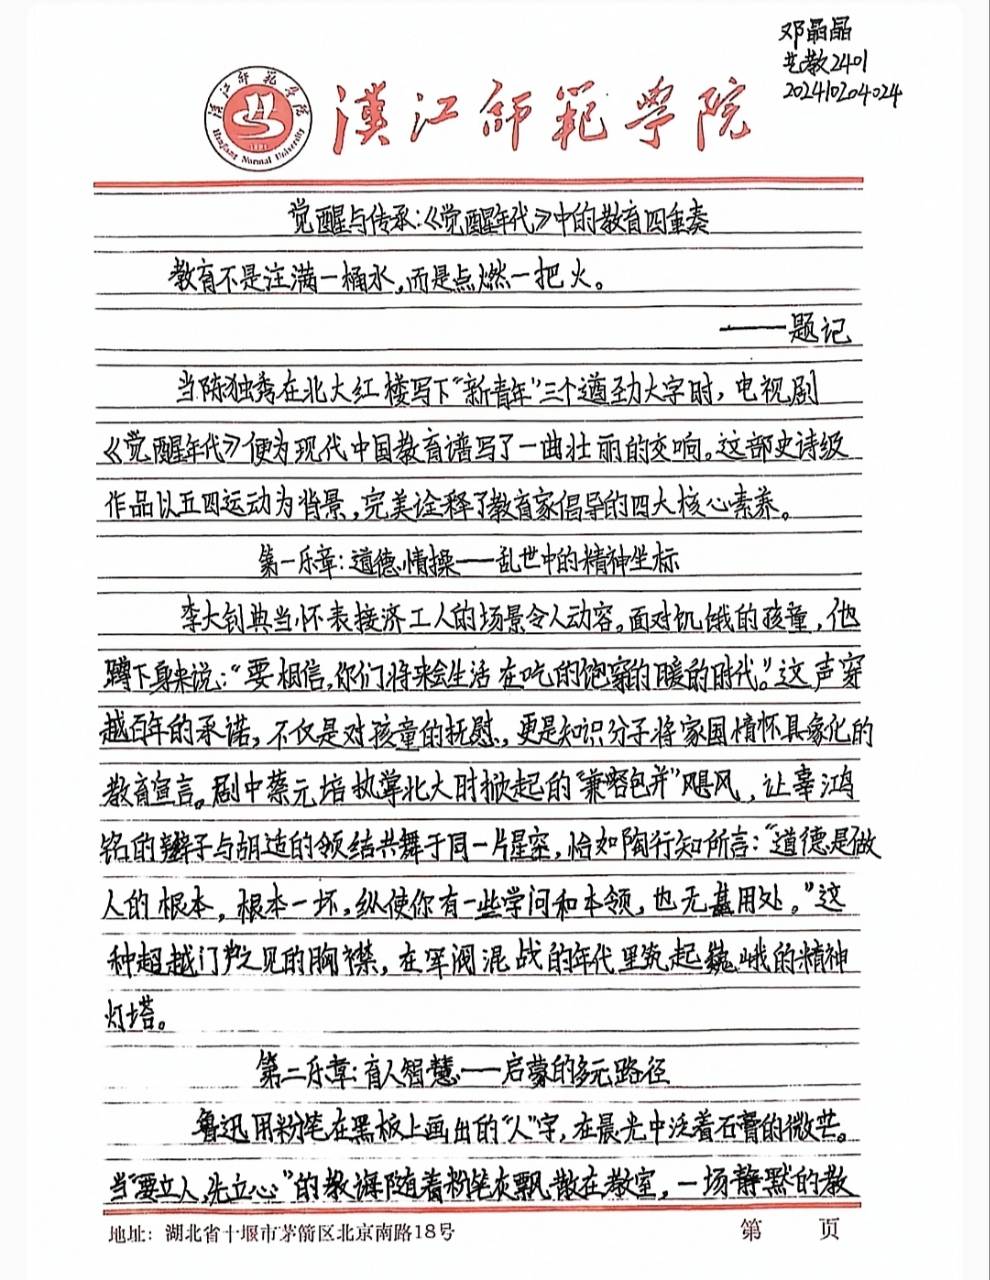 邓晶晶
艺教2401
202410204024
漢江師範學院
Hanjiang Normal University
觉醒与传承:《觉醒年代》中的教育四重奏
教育不是注满一桶水,而是点燃一把火。
——题记
当陈独秀在北大红楼写下“新青年”三个遒劲大字时,电视剧
《觉醒年代》便为现代中国教育谱写了一曲壮丽的交响。这部史诗级
作品以五四运动为背景,完美诠释了教育家倡导的四大核心素养。
第一乐章:道德情操——乱世中的精神坐标
李大钊典当怀表接济工人的场景令人动容。面对饥饿的孩童,他
蹲下身来说:“要相信,你们将来会生活在吃的饱穿的暖的时代。”这声穿
越百年的承诺,不仅是对孩童的抚慰,更是知识分子将家国情怀具象化的
教育宣言。剧中蔡元培执掌北大时掀起的“兼容包并”飓风,让辜鸿
铭的辫子与胡适的领结共舞于同一片星空,恰如陶行知所言:“道德是做
人的根本,根本一坏,纵使你有一些学问和本领,也无甚用处。”这
种超越门户之见的胸襟,在军阀混战的年代里筑起巍峨的精神
灯塔。
第二乐章:育人智慧——启蒙的多元路径
鲁迅用粉笔在黑板上画出的“人”字,在晨光中泛着石膏的微芒。
当“要立人,先立心”的教诲随着粉笔灰飘散在教室,一场静默的教
地址:湖北省十堰市茅箭区北京南路18号
第 页